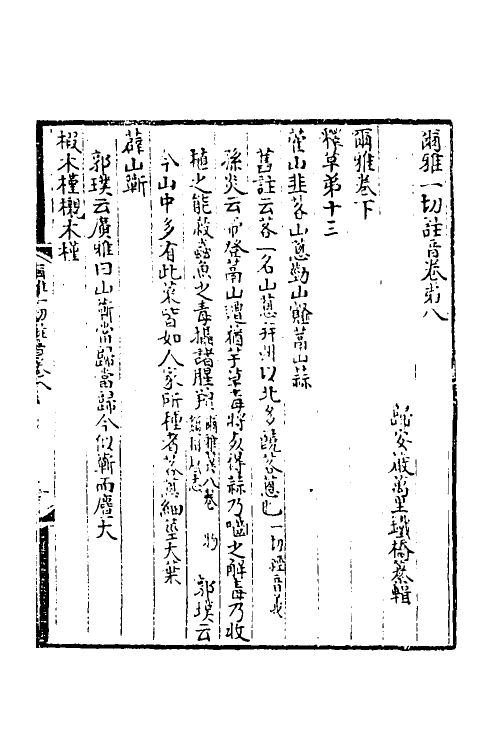 爾雅一切註音卷第八
歸安嚴萬里鐵橋纂輯
爾雅卷下
釋草第十三
雚山韭茖山蔥勤山䪥蒚山蒜
舊註云茖一名山蔥幷州以北多饒茖蔥也一切經音義
孫炎云帝登蒚山遭蕕芋草毒將死得蒜乃嚙之解毒乃收
植之能殺蟲魚之毒攝諸腥羶爾雅翼八卷 郭璞云
今山中多有此菜皆如人家所種者茖蔥細莖大葉
薜山蘄
郭璞云廣雅曰山蘄當歸當歸今似蘄而麤大
椵木槿櫬木槿
爾雅一切註音卷八